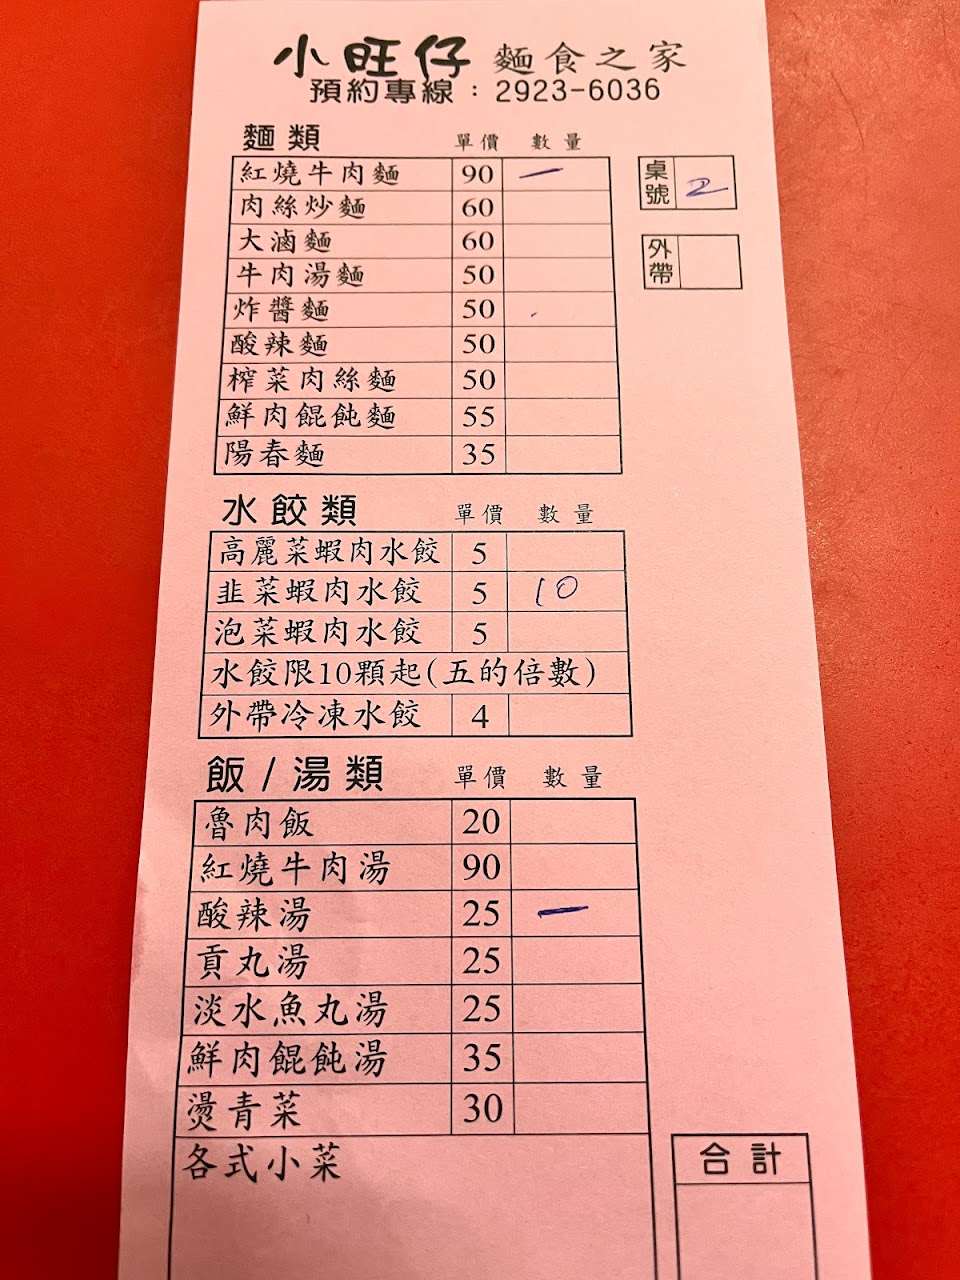 小旺仔 麵食之家
預約專線：2923-6036
麵類 單價 數量
紅燒牛肉麵 90 一
桌號 2
肉絲炒麵 60
大滷麵 60
外帶
牛肉湯麵 50
炸醬麵 50
酸辣麵 50
榨菜肉絲麵 50
鮮肉餛飩麵 55
陽春麵 35
水餃類 單價 數量
高麗菜蝦肉水餃 5
韭菜蝦肉水餃 5 10
泡菜蝦肉水餃 5
水餃限10顆起(五的倍數)
外帶冷凍水餃 4
飯/湯類 單價 數量
魯肉飯 20
紅燒牛肉湯 90
酸辣湯 25 一
貢丸湯 25
淡水魚丸湯 25
鮮肉餛飩湯 35
燙青菜 30
各式小菜
合計